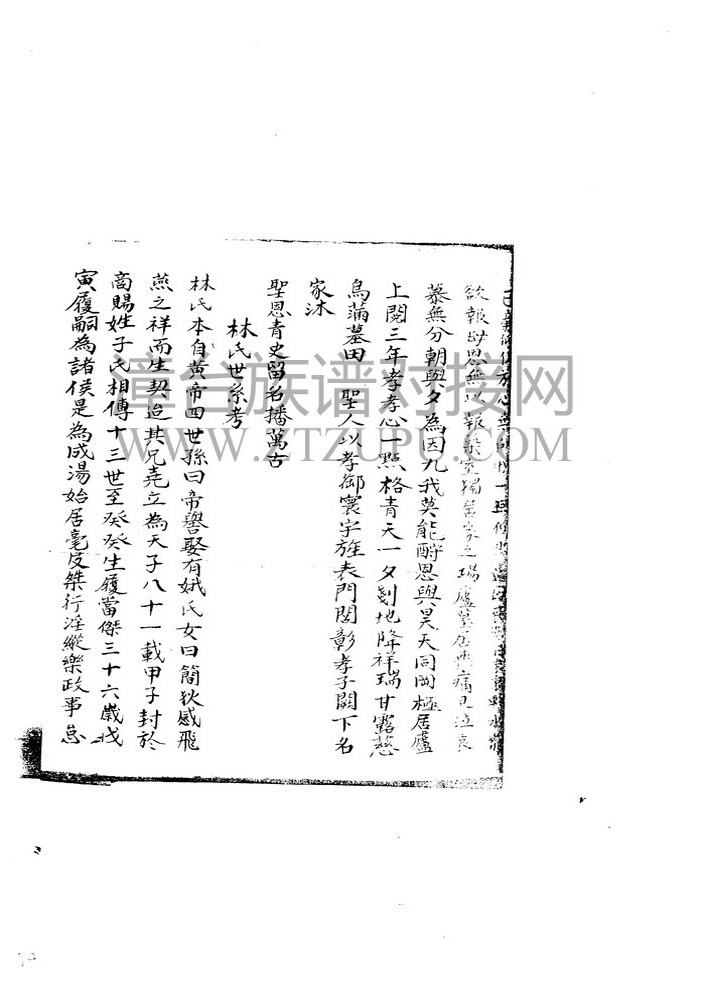 欲報母恩無以報 室獨居 瑞廬墓居喪痛 泣哀
慕無分朝與夕為因九我莫能酧恩與昊天同罔極居廬
上閱三年孝孝心一點格青天一夕剗地降祥瑞甘露慈
烏滿墓田 聖人以孝御寰宇旌表門閭彰孝子闕下名
家沐
聖恩青史留名播萬古
林氏世系考
林氏本自黃帝四世孫曰帝嚳娶有娀氏女曰簡狄感飛
燕之祥而生契迨其兄堯立為天子八十一載甲子封於
商賜姓子氏相傳十三世至癸癸生履當傑三十六歲戊
寅履嗣為諸侯是為成湯始居亳及桀行淫縱樂政事怠
漳台族谱对接网
WWW.ZTZUPU.COM